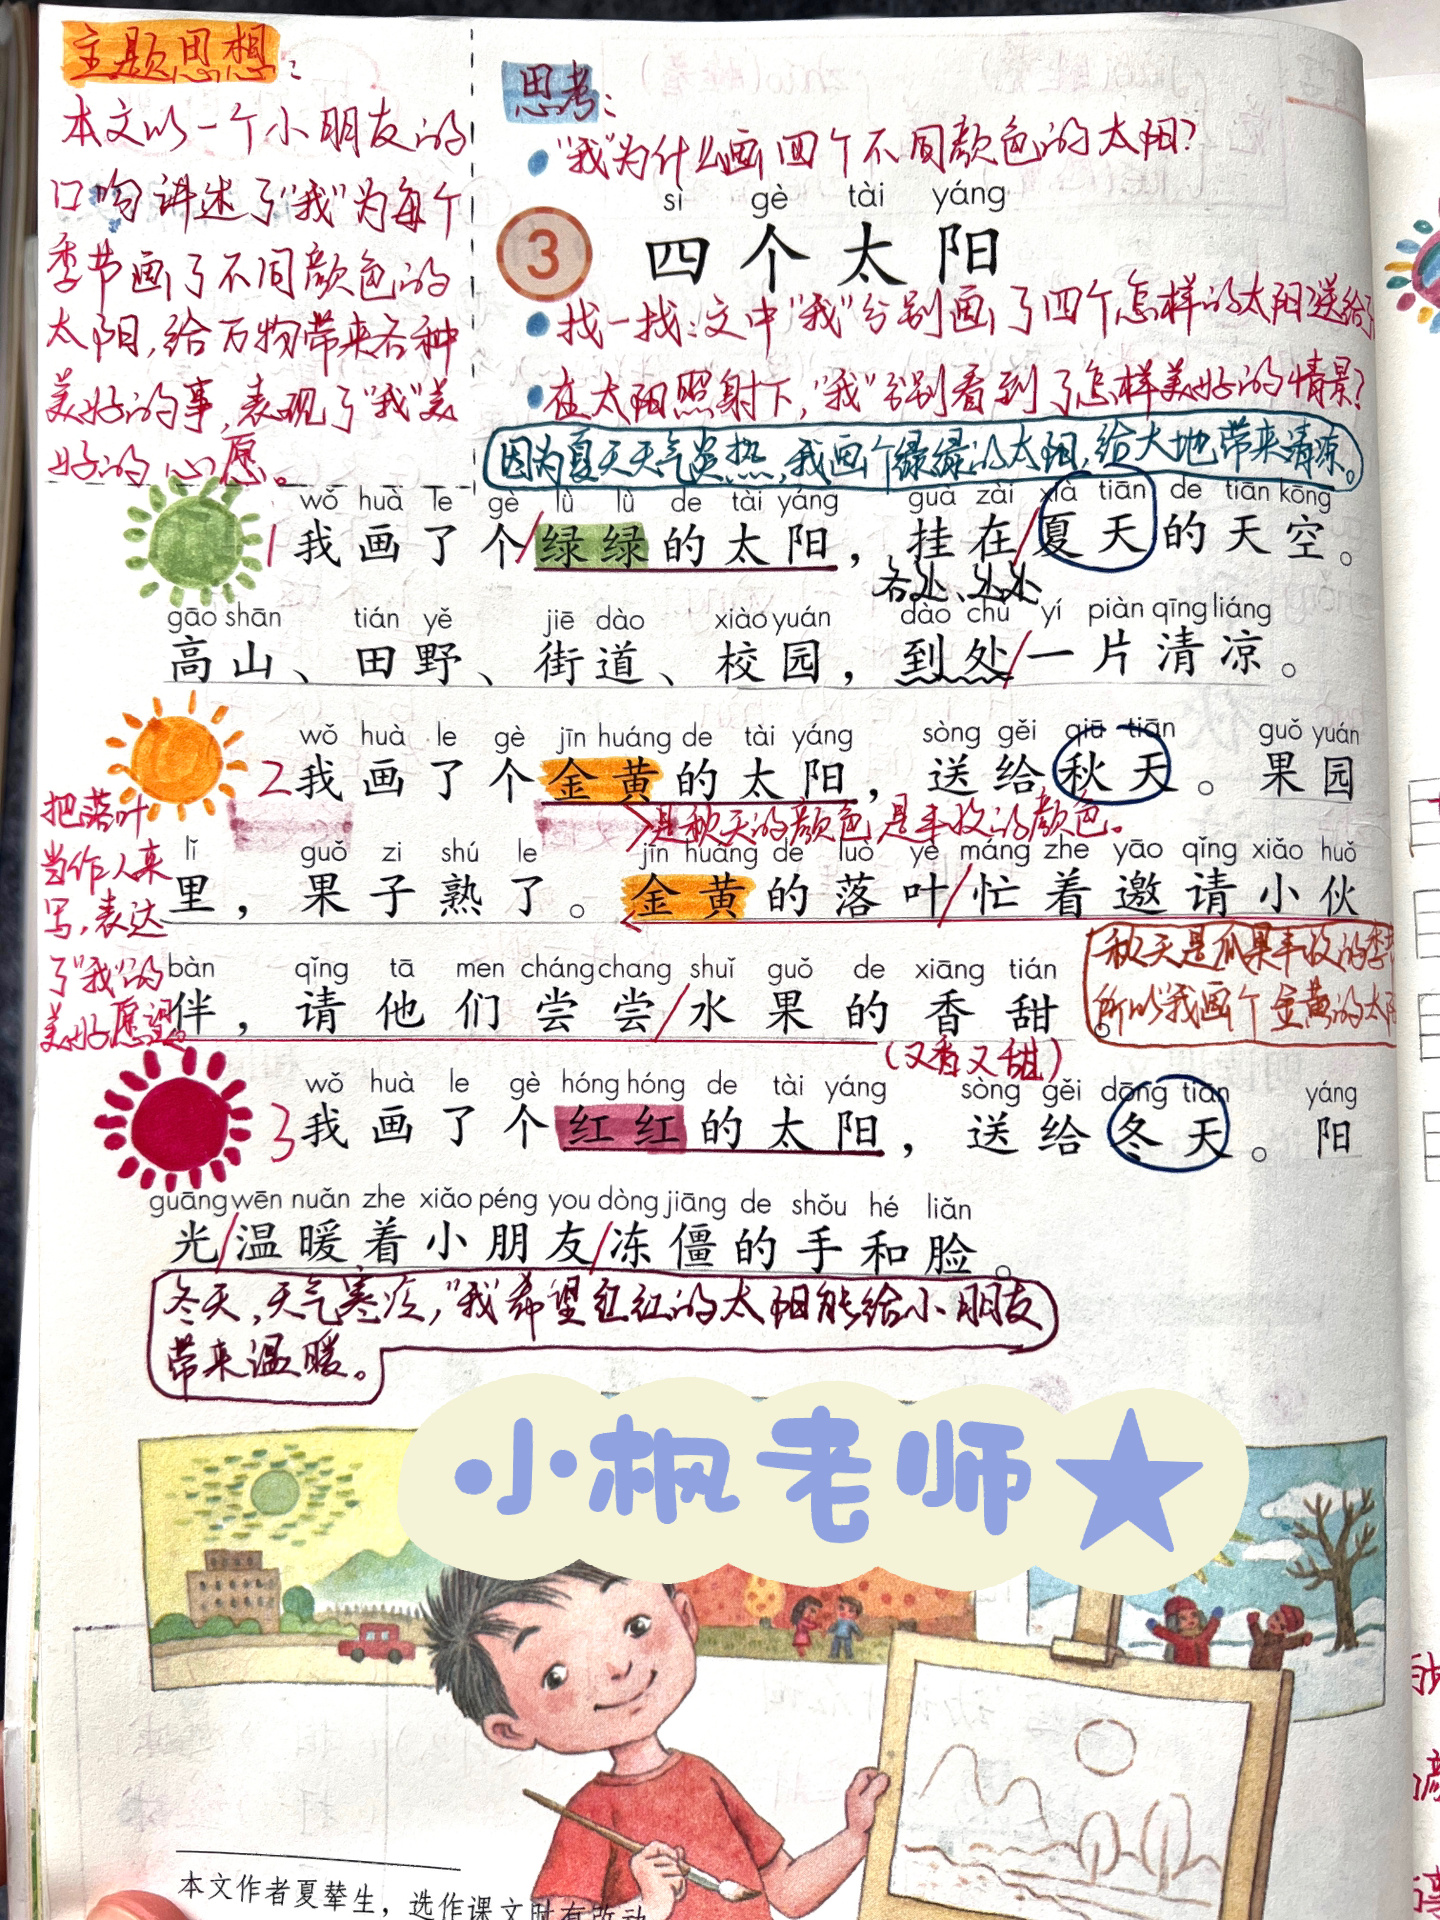 主题思想：
本文以一个小朋友的
口吻讲述了"我"为每个
季节画了不同颜色的
太阳，给万物带来各种
美好的事，表现了"我"美
好的心愿。
思考：
"我"为什么画四个不同颜色的太阳？
sì gè tài yáng
3 四个太阳
找一找：文中"我"分别画了四个怎样的太阳送给
在太阳照射下，"我"分别看到了怎样美好的情景？
因为夏天天气炎热，我画个绿绿的太阳，给大地带来清凉。
wǒ huà le gè lǜ lǜ de tài yáng guà zài xià tiān de tiān kōng
1 我画了个绿绿的太阳，挂在夏天的天空。
各处、处处
gāo shān tián yě jiē dào xiào yuán dào chù yí piàn qīng liáng
高山、田野、街道、校园，到处一片清凉。
wǒ huà le gè jīn huáng de tài yáng sòng gěi qiū tiān guǒ yuán
2 我画了个金黄的太阳，送给秋天。果园
是秋天的颜色，是丰收的颜色。
lǐ guǒ zi shú le jīn huáng de luò yè máng zhe yāo qǐng xiǎo huǒ
里，果子熟了。金黄的落叶忙着邀请小伙
把落叶
当作人来
写，表达
了"我"的
美好愿望。
bàn qǐng tā men cháng chang shuǐ guǒ de xiāng tián
伴，请他们尝尝水果的香甜。
秋天是瓜果丰收的季
所以"我"画个金黄的太阳
（又香又甜）
wǒ huà le gè hóng hóng de tài yáng sòng gěi dōng tiān yáng
3 我画了个红红的太阳，送给冬天。阳
guāng wēn nuǎn zhe xiǎo péng you dòng jiāng de shǒu hé liǎn
光温暖着小朋友冻僵的手和脸。
冬天，天气寒冷，"我"希望红红的太阳能给小朋友
带来温暖。
小枫老师
本文作者夏辇生，选作课文时有改动